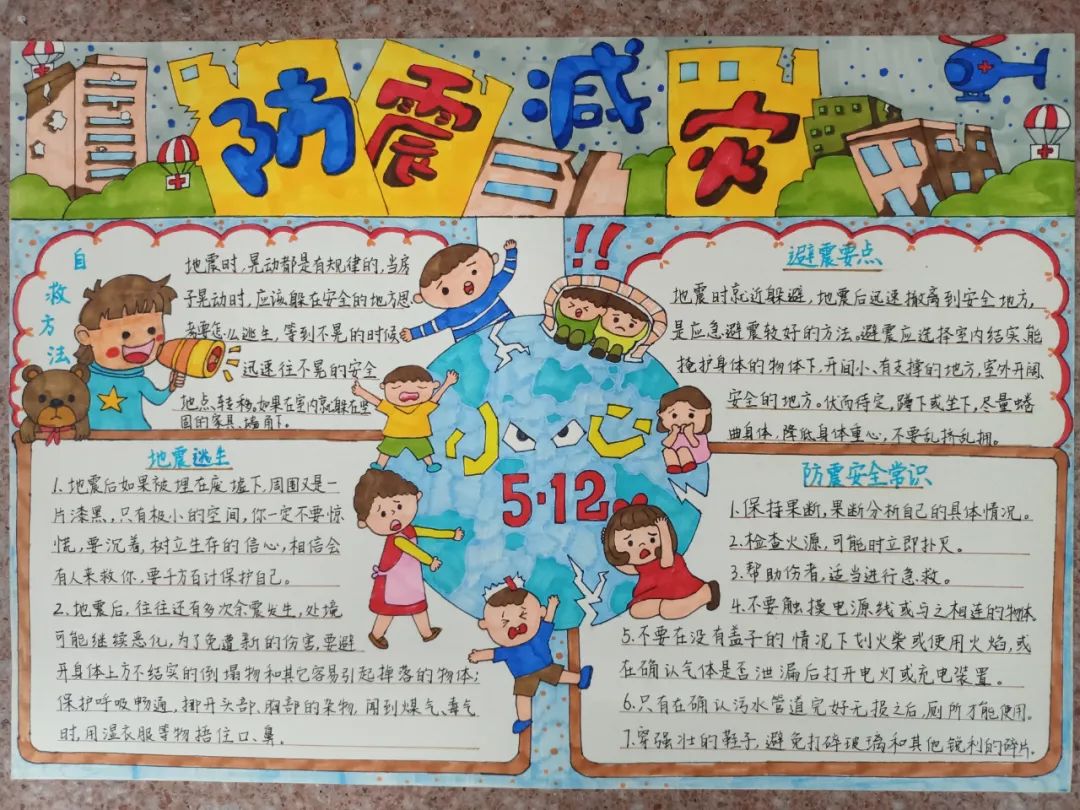 防震减灾
自救方法
地震时,晃动都是有规律的,当房
子晃动时,应该躲在安全的地方思
考要怎么逃生,等到不晃的时候
迅速往不晃的安全
地点转移,如果在室内就躲在坚
固的家具、墙角下。
!!
避震要点
地震时就近躲避,地震后迅速撤离到安全地方,
是应急避震较好的方法。避震应选择室内结实、能
掩护身体的物体下,开间小、有支撑的地方,室外开阔、
安全的地方。伏而待定,蹲下或坐下,尽量蜷
曲身体,降低身体重心,不要乱挤乱拥。
小心
5·12
地震逃生
1.地震后如果被埋在废墟下,周围又是一
片漆黑,只有极小的空间,你一定不要惊
慌,要沉着,树立生存的信心,相信会
有人来救你,要千方百计保护自己。
2.地震后,往往还有多次余震发生,处境
可能继续恶化,为了免遭新的伤害,要避
开身体上方不结实的倒塌物和其它容易引起掉落的物体;
保护呼吸畅通,挪开头部、胸部的杂物,闻到煤气、毒气
时,用湿衣服等物捂住口、鼻。
防震安全常识
1.保持果断,果断分析自己的具体情况。
2.检查火源,可能时立即扑灭。
3.帮助伤者,适当进行急救。
4.不要触摸电源线或与之相连的物体
5.不要在没有盖子的情况下划火柴或使用火焰,或
在确认气体是否泄漏后打开电灯或充电装置。
6.只有在确认污水管道完好无损之后,厕所才能使用。
7.穿强壮的鞋子,避免打碎玻璃和其他锐利的碎片.